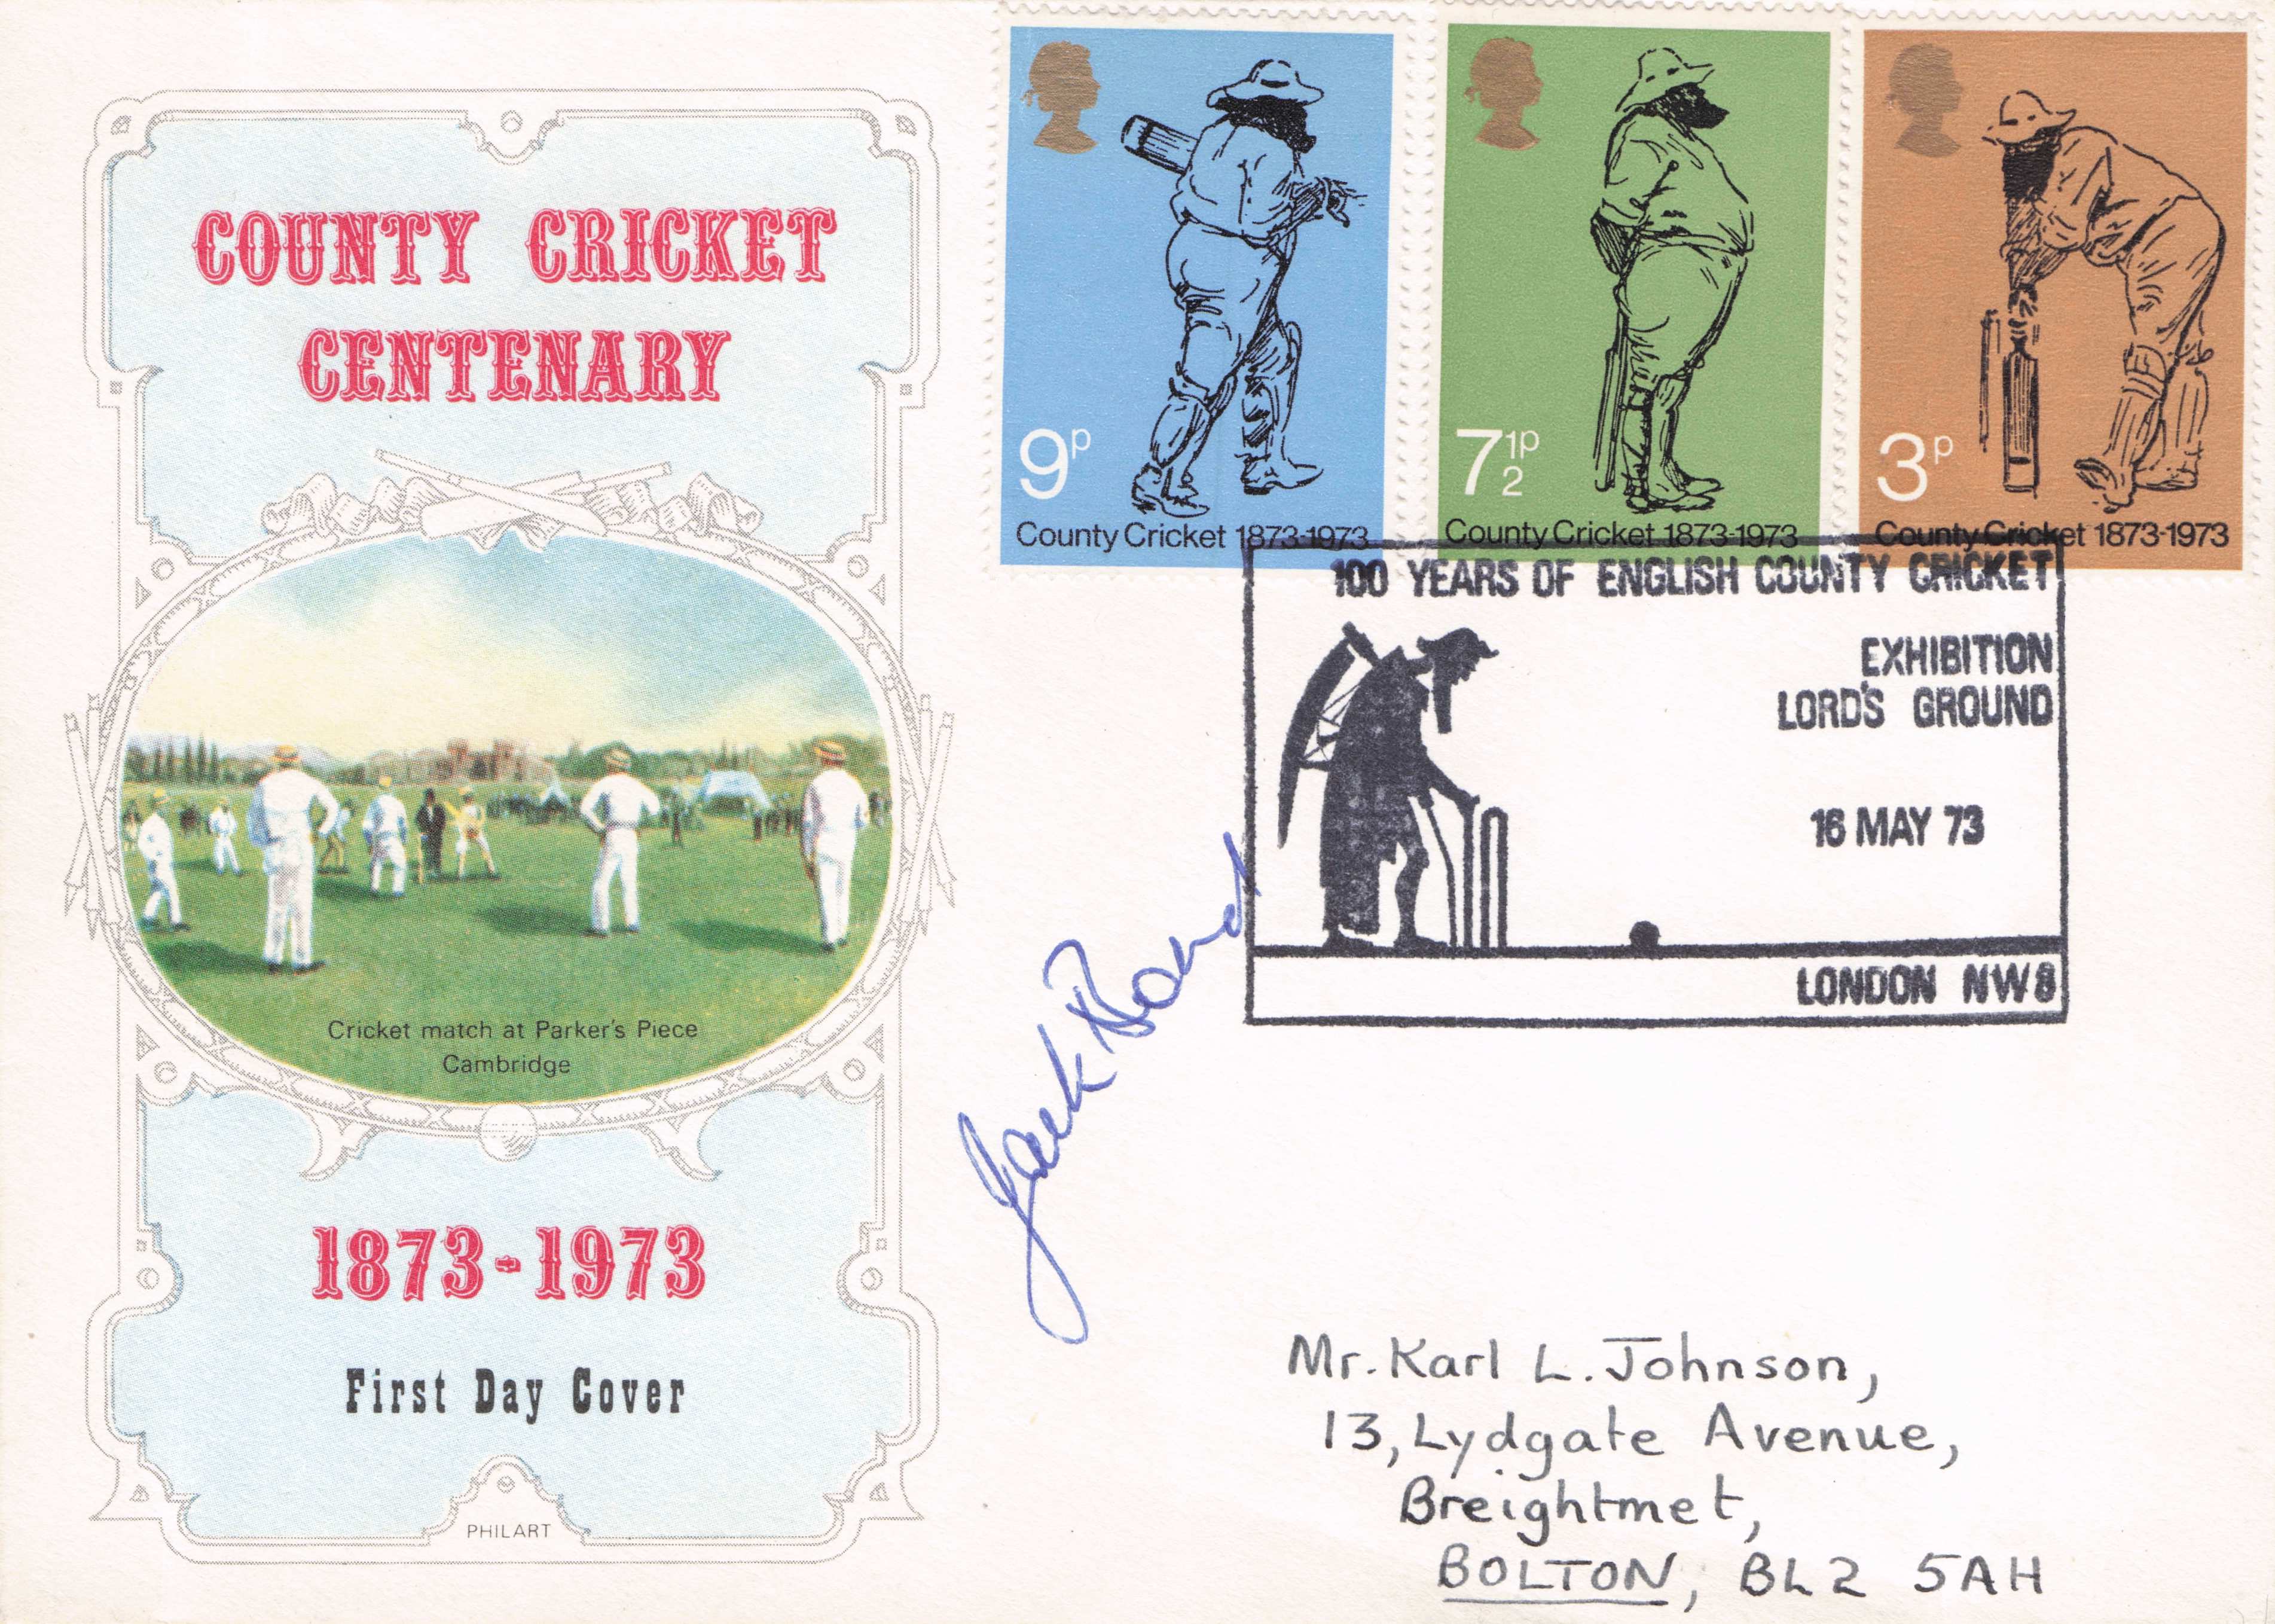 COUNTY CRICKET
CENTENARY
Cricket match at Parker's Piece
Cambridge
1873-1973
First Day Cover
PHILART
9p
County Cricket 1873-1973
7½p
County Cricket 1873-1973
3p
County Cricket 1873-1973
100 YEARS OF ENGLISH COUNTY CRICKET
EXHIBITION
LORD'S GROUND
16 MAY 73
LONDON NW8
Jack Bond
Mr. Karl L. Johnson,
13, Lydgate Avenue,
Breightmet,
BOLTON, BL2 5AH